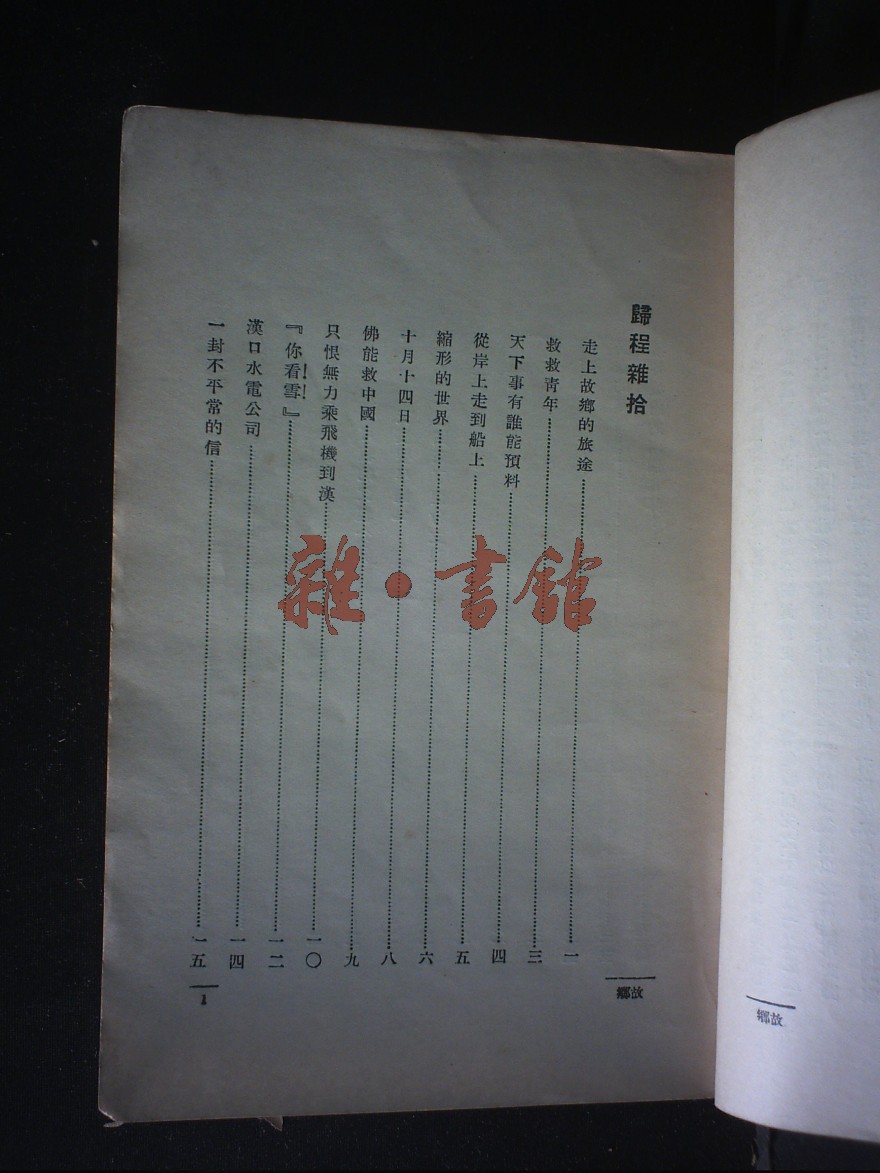 歸程雜拾
走上故鄉的旅途……一
救救青年……三
天下事有誰能預料……四
從岸上走到船上……五
縮形的世界……六
十月十四日……八
佛能救中國……九
只恨無力乘飛機到漢……一〇
『你看!雪!』……一二
漢口水電公司……一四
一封不平常的信……一五
鄉故
1
鄉故
雜·書館